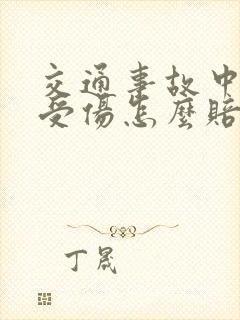 交通事故中
受傷怎麼賠
丁晟